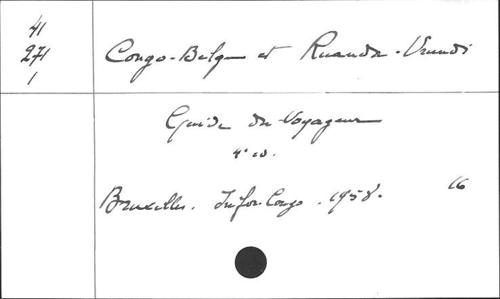 41
271
1
Congo-Belge et Ruanda-Urundi
Guide du Voyageur
4e éd.
Bruxelles. Infor Congo. 1958. 16